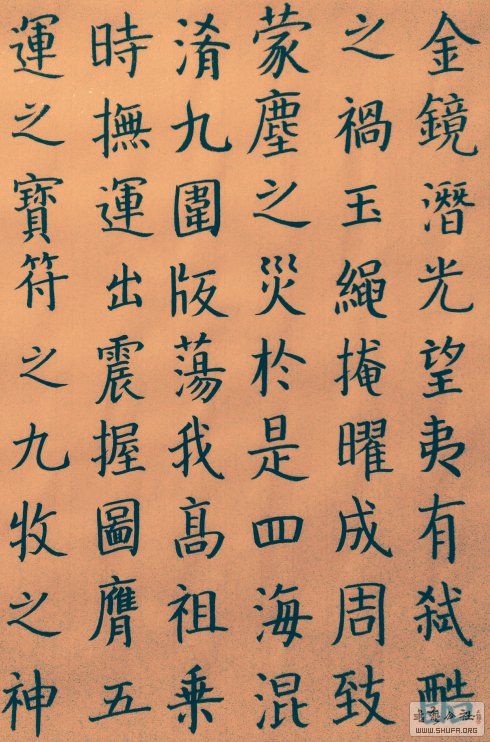 金鏡潛光望夷有弒酷
之禍玉繩掩曜成周致
蒙塵之災於是四海混
淆九圍版蕩我高祖乘
時撫運出震握圖膺五
運之寶符之九牧之神
WWW.SHUFA.ORG